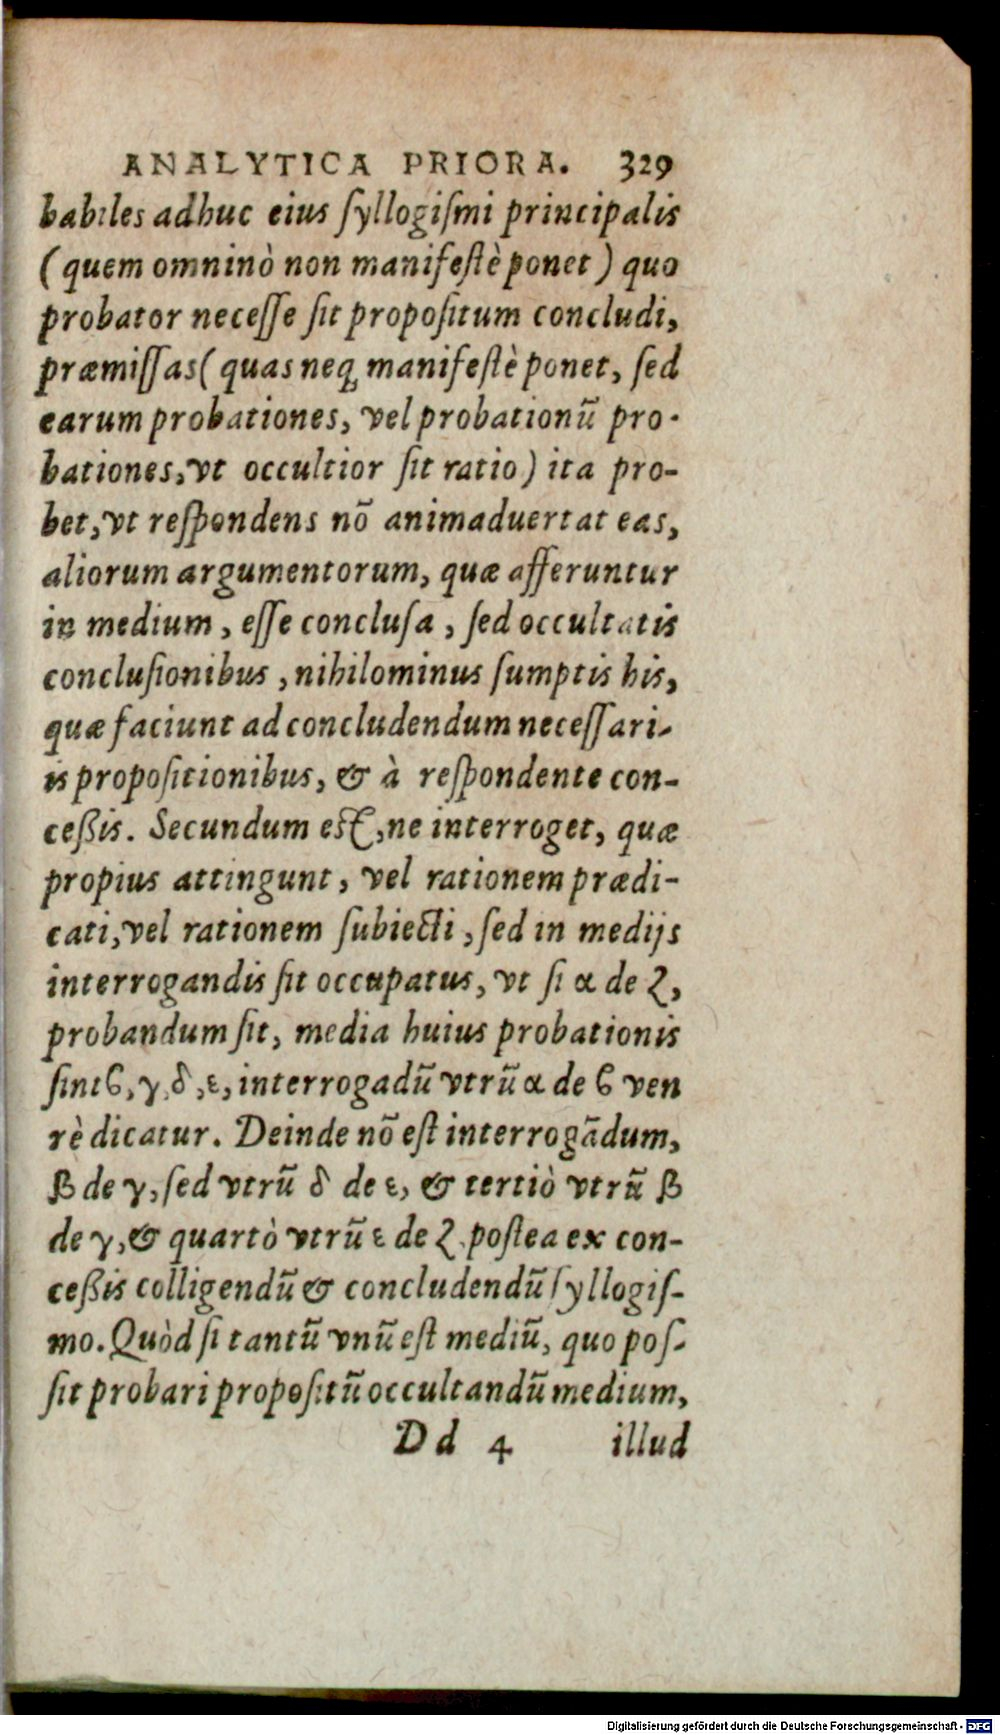 ANALYTICA PRIORA. 329
babiles adhuc eius ſyllogiſmi principalis
(quem omninò non manifeſtè ponet) quo
probator neceſſe ſit propoſitum concludi,
præmiſſas (quas neq; manifeſtè ponet, ſed
earum probationes, vel probationũ pro-
bationes, vt occultior ſit ratio) ita pro-
bet, vt reſpondens nõ animaduertat eas,
aliorum argumentorum, quæ afferuntur
in medium, eſſe concluſa, ſed occultatis
concluſionibus, nihilominus ſumptis his,
quæ faciunt ad concludendum neceſſari-
is propoſitionibus, & à reſpondente con-
ceßis. Secundum eſt, ne interroget, quæ
propius attingunt, vel rationem prædi-
cati, vel rationem ſubiecti, ſed in medijs
interrogandis ſit occupatus, vt ſi α de ζ,
probandum ſit, media huius probationis
ſint ϐ, γ, δ, ε, interrogadũ vtrũ α de ϐ ven
rè dicatur. Deinde nõ eſt interrogãdum,
β de γ, ſed vtrũ δ de ε, & tertiò vtrũ β
de γ, & quartò vtrũ ε de ζ. poſtea ex con-
ceßis colligendũ & concludendũ ſyllogiſ-
mo. Quòd ſi tantũ vnũ eſt mediũ, quo poſ-
ſit probari propoſitũ occultandũ medium,
Dd 4 illud
Digitalisierung gefördert durch die Deutsche Forschungsgemeinschaft - DFG